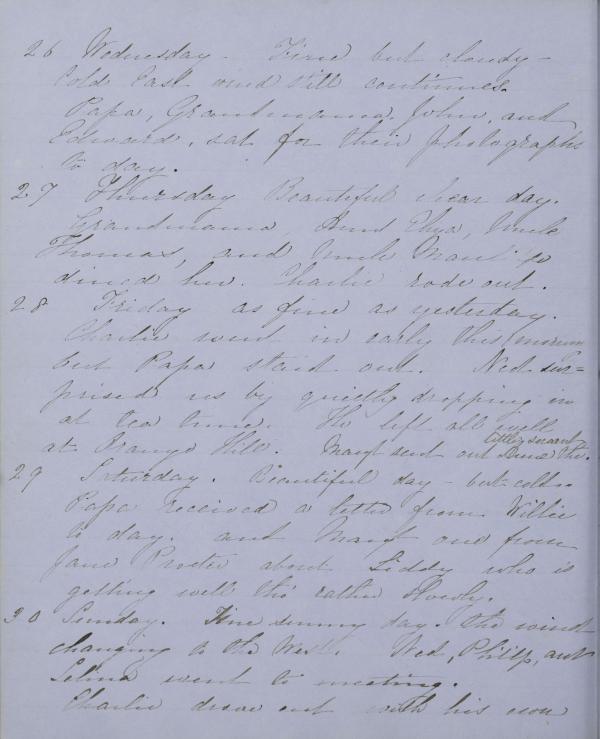 26 Wednesday - Fine but cloudy -
Cold East wind still continues.
Papa, Grandmama, John, and
Edward, sat for their photographs
to day.
27 Thursday Beautiful clear day.
Grandmama, Aunt Eliza, Uncle
Thomas, and Uncle
dined here. Charlie rode out.
28 Friday as fine as yesterday.
Charlie went in early this morning
but Papa staid out. Ned sur=
prised us by quietly dropping in
at tea time. He left all well
at Orange Hill. Margt sent out little servant
29 Saturday. Beautiful day - but cold.
Papa received a letter from Willie
to day. and Margt one from
Jane Procter about Liddy who is
getting well tho' rather slowly.
30 Sunday. Fine sunny day. the wind
changing to the West. Ned, Philip, and
Selma went to meeting.
Charlie drove out with his own